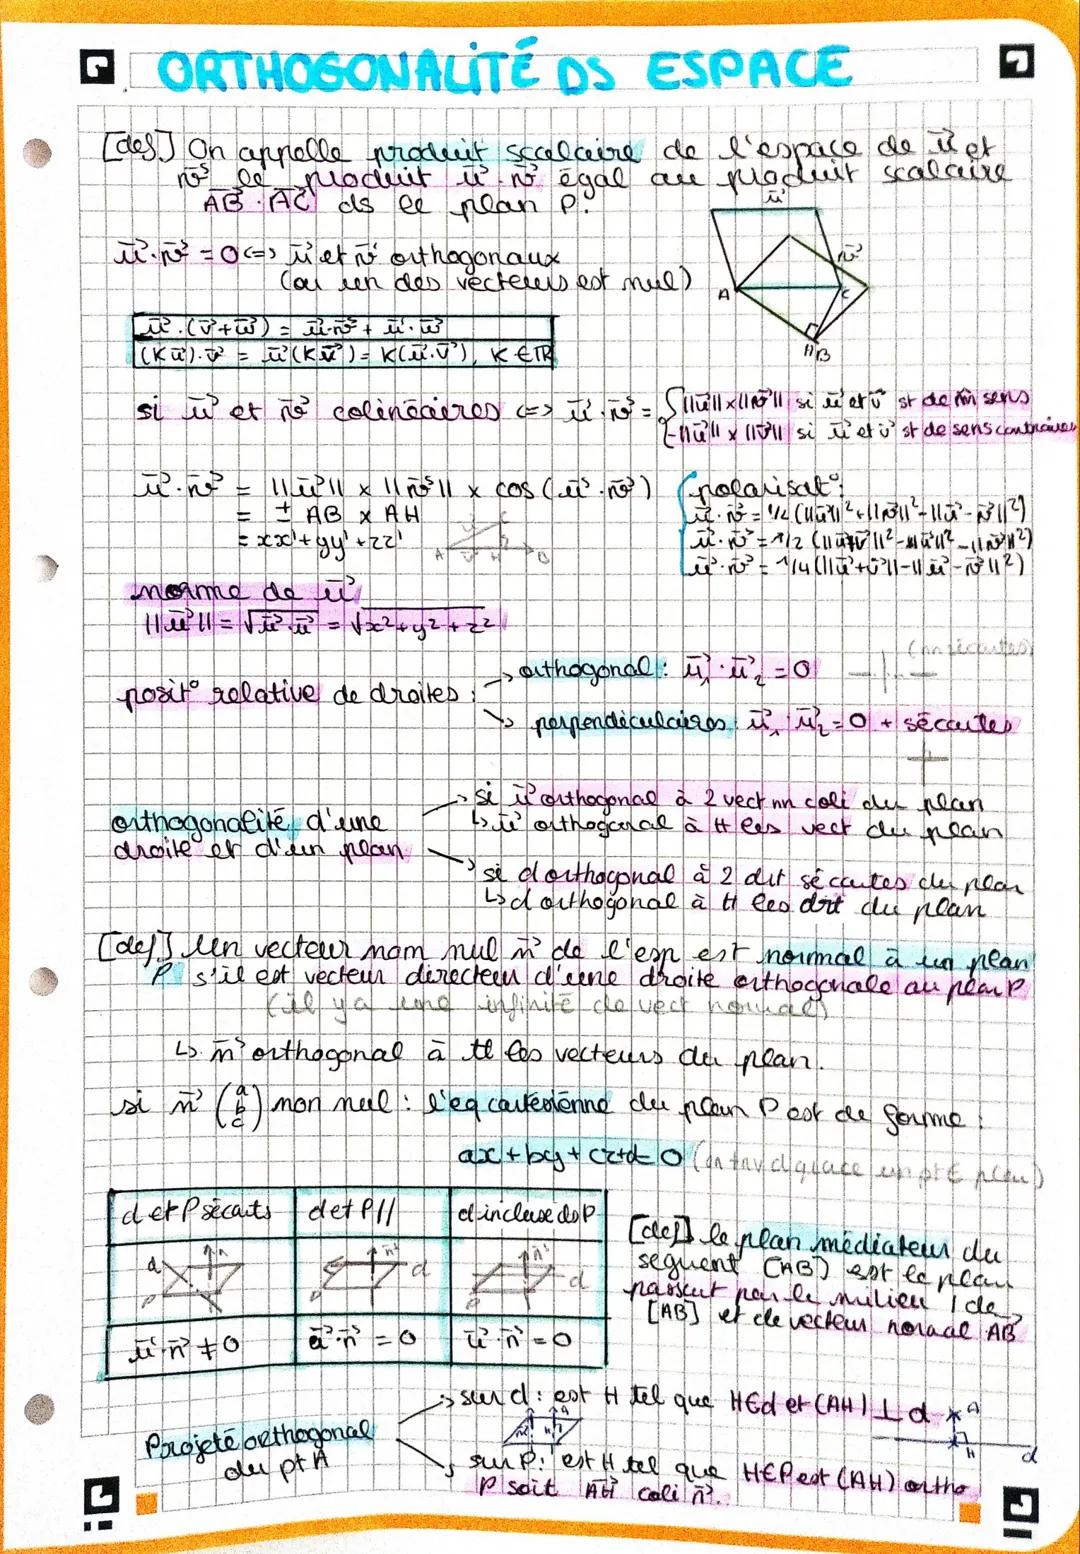 ORTHOGONALITÉ DS ESPACE
[def] On appelle produit scalaire de l'espace de u⃗ et
v⃗ le produit u⃗.v⃗ égal au produit scalaire
AB⃗.AC⃗ ds le plan P.
u⃗
v⃗
A
C
H B
u⃗.v⃗ = 0 <=> u⃗ et v⃗ orthogonaux
(ou un des vecteurs est nul)
u⃗.(v⃗+w⃗) = u⃗.v⃗ + u⃗.w⃗
(Ku⃗).v⃗ = u⃗(Kv⃗) = K(u⃗.v⃗), K ∈ ℝ
si u⃗ et v⃗ colinéaires <=> u⃗.v⃗ = { ||u⃗|| x ||v⃗|| si u⃗ et v⃗ st de m̂ sens
-||u⃗|| x ||v⃗|| si u⃗ et v⃗ st de sens contraires
u⃗.v⃗ = ||u⃗|| x ||v⃗|| x cos (u⃗.v⃗)
= ± AB x AH
= xx'+yy'+zz'
A H B C
polarisat°:
u⃗.v⃗ = 1/2 (||u⃗||²+||v⃗||²-||u⃗-v⃗||²)
u⃗.v⃗ = 1/2 (||u⃗+v⃗||²-||u⃗||²-||v⃗||²)
u⃗.v⃗ = 1/4 (||u⃗+v⃗||-||u⃗-v⃗||²)
norme de u⃗
||u⃗|| = √u⃗.u⃗ = √x²+y²+z²
(nn sécantes)
posit° relative de droites : → orthogonal : u⃗₁.u⃗₂ = 0
→ perpendiculaires : u⃗₁.u⃗₂ = 0 + sécantes
orthogonalité d'une
droite et d'un plan
→ si u⃗ orthogonal à 2 vect nn coli du plan
↳ u⃗ orthogonal à tt les vect du plan
→ si d orthogonal à 2 drt sécantes du plan
↳ d orthogonal à tt les drt du plan
[def] Un vecteur nom nul n⃗ de l'esp est normal à un plan
P s'il est vecteur directeur d'une droite orthogonale au plan P
(il y a une infinité de vect normal)
↳ n⃗ orthogonal à tt les vecteurs du plan.
si n⃗ (a b c) non nul : l'eq cartésienne du plan P est de forme :
ax + by + cz + d = 0 (on trv d grace un pt ∈ plan)
d et P sécants | d et P // | d incluse ds P
d n⃗ P | n⃗ d P | n⃗ d P
u⃗.n⃗ ≠ 0 | u⃗.n⃗ = 0 | u⃗.n⃗ = 0
[def] le plan médiateur du
segment [AB] est le plan
passant par le milieu I de
[AB] et de vecteur normal AB⃗
Projeté orthogonal
du pt A
→ sur d : est H tel que H∈d et (AH) ⊥ d
A
H
d
→ sur P : est H tel que H∈P est (AH) ortho
P soit AH⃗ coli n⃗.